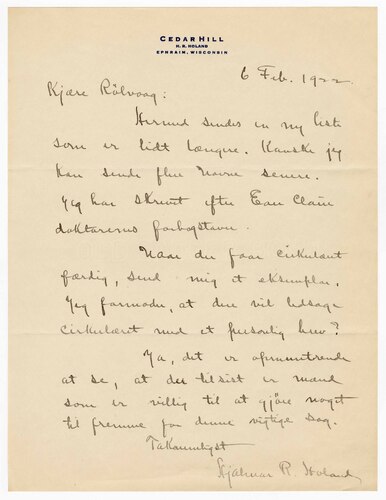 CEDAR HILL
H. R. HOLAND
EPHRAIM, WISCONSIN
6 Feb. 1922
Kjære Rölvaag:
Herved sendes en ny liste
som er lidt længre. Kanske jeg
kan sende flere navne senere.
Jeg har skrevet efter Eau Claire
doktorerns forbogstaver.
Naar du faar cirkulæret
færdig, send mig et eksemplar.
Jeg formoder, at du vil ledsage
cirkulæret med et personlig brev?
Ja, det er opmuntrende
at se, at der tilsist er mænd
som er villig til at gjøre noget
til fremme for denne vigtige sag.
Taknemligst
Hjalmar R. Holand